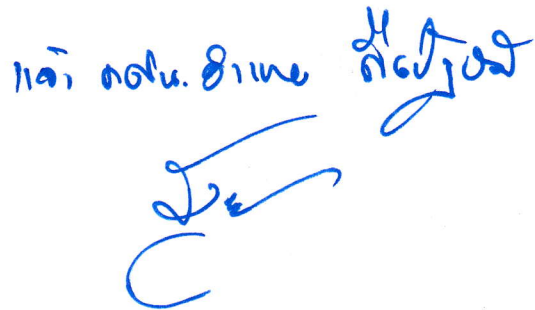 แจ้ง กศน.อำเภอ ถือปฏิบัติ